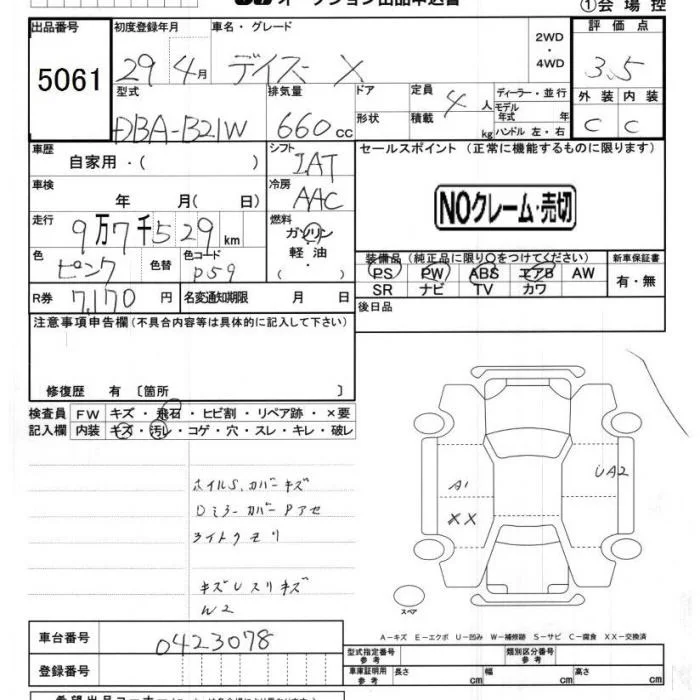 オークション出品申込書
①会場控
出品番号
5061
初度登録年月
29 4月
車名・グレード
デイズ X
2WD
・
4WD
評価点
3.5
型式
DBA-B21W
排気量
660cc
ドア
形状
定員
4人
積載
kg
ディーラー・並行
モデル
年式 年
ハンドル 左・右
外装 内装
C C
車歴
自家用・( )
シフト
IAT
セールスポイント (正常に機能するものに限ります)
車検
年 月( 日)
冷房
AAC
NOクレーム・売切
走行
9万7千529km
燃料
ガソリン
軽・油
( ・ )
色
ピンク
色替
色コード
P59
装備品 (純正品に限り○をつけてください)
新車保証書
PS PW ABS エアB AW
SR ナビ TV カワ
有・無
R券 7,170円
名変通知期限 月 日
後日品
注意事項申告欄 (不具合内容等は具体的に記入して下さい)
修復歴 有 〔箇所 〕
検査員 FW キズ・飛石・ヒビ割・リペア跡・×要
記入欄 内装 キズ・汚レ・コゲ・穴・スレ・キレ・破レ
ホイルS.カバーキズ
Dミラーカバー Pアセ
ライトクモリ
キズUスリキズ
W2
A1
XX
UA2
スペア
A-キズ E-エクボ U-凹み W-補修跡 S-サビ C-腐食 XX-交換済
車台番号 0423078
登録番号
型式指定番号
参考
類別区分番号
参考
車庫証明用
参考
長さ cm 幅 cm 高さ cm
希望出品コーナー